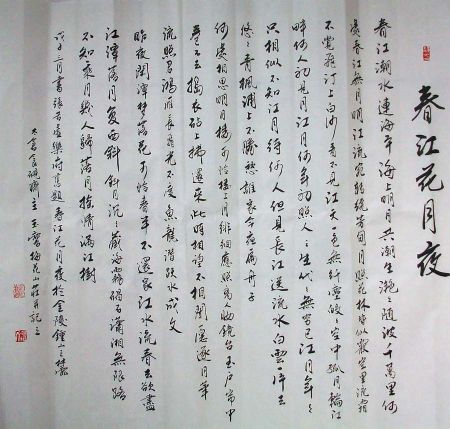 春江花月夜
春江潮水連海平海上明月共潮生灩々隨波千萬里何
處春江無月明江流宛轉繞芳甸月照花林皆似霰空里流霜
不覺飛汀上白沙看不見江天一色無纖塵皎々空中孤月輪江
畔何人初見月江月何年初照人人生代代無窮已江月年々
只相似不知江月待何人但見長江送流水白雲一片去
悠々青楓浦上不勝愁誰家今夜扁舟子
何處相思明月樓可憐樓上月徘徊應照離人妝鏡台玉戶簾中
卷不去擣衣砧上拂還來此時相望不相聞願逐月華
流照君鴻雁長飛光不度魚龍潛躍水成文
昨夜閑潭夢落花可憐春半不還家江水流春去欲盡
江潭落月復西斜斜月沉々藏海霧碣石瀟湘無限路
不知乘月幾人歸落月搖情滿江樹
戊子三月書張若虛樂府舊題春江花月夜於金陵鐘山之林
主王梅花山莊并記之